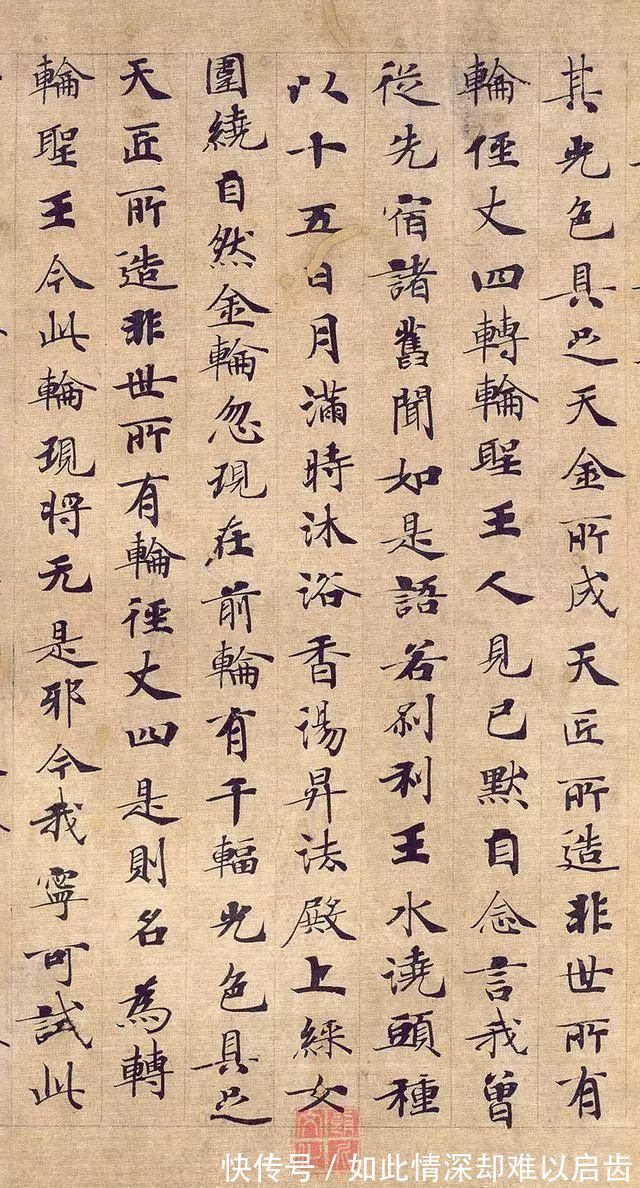 其光色具足天金所成天匠所造非世所有
輪俓丈四轉輪聖王人見已默自念言我曾
從先宿諸舊聞如是語若剎利王水澆頭種
以十五日月滿時沐浴香湯昇法殿上綵女
圍繞自然金輪忽現在前輪有千輻光色具足
天匠所造非世所有輪徑丈四是則名為轉
輪聖王今此輪現將无是邪今我寧可試此
快传号/如此情深却难以启齿